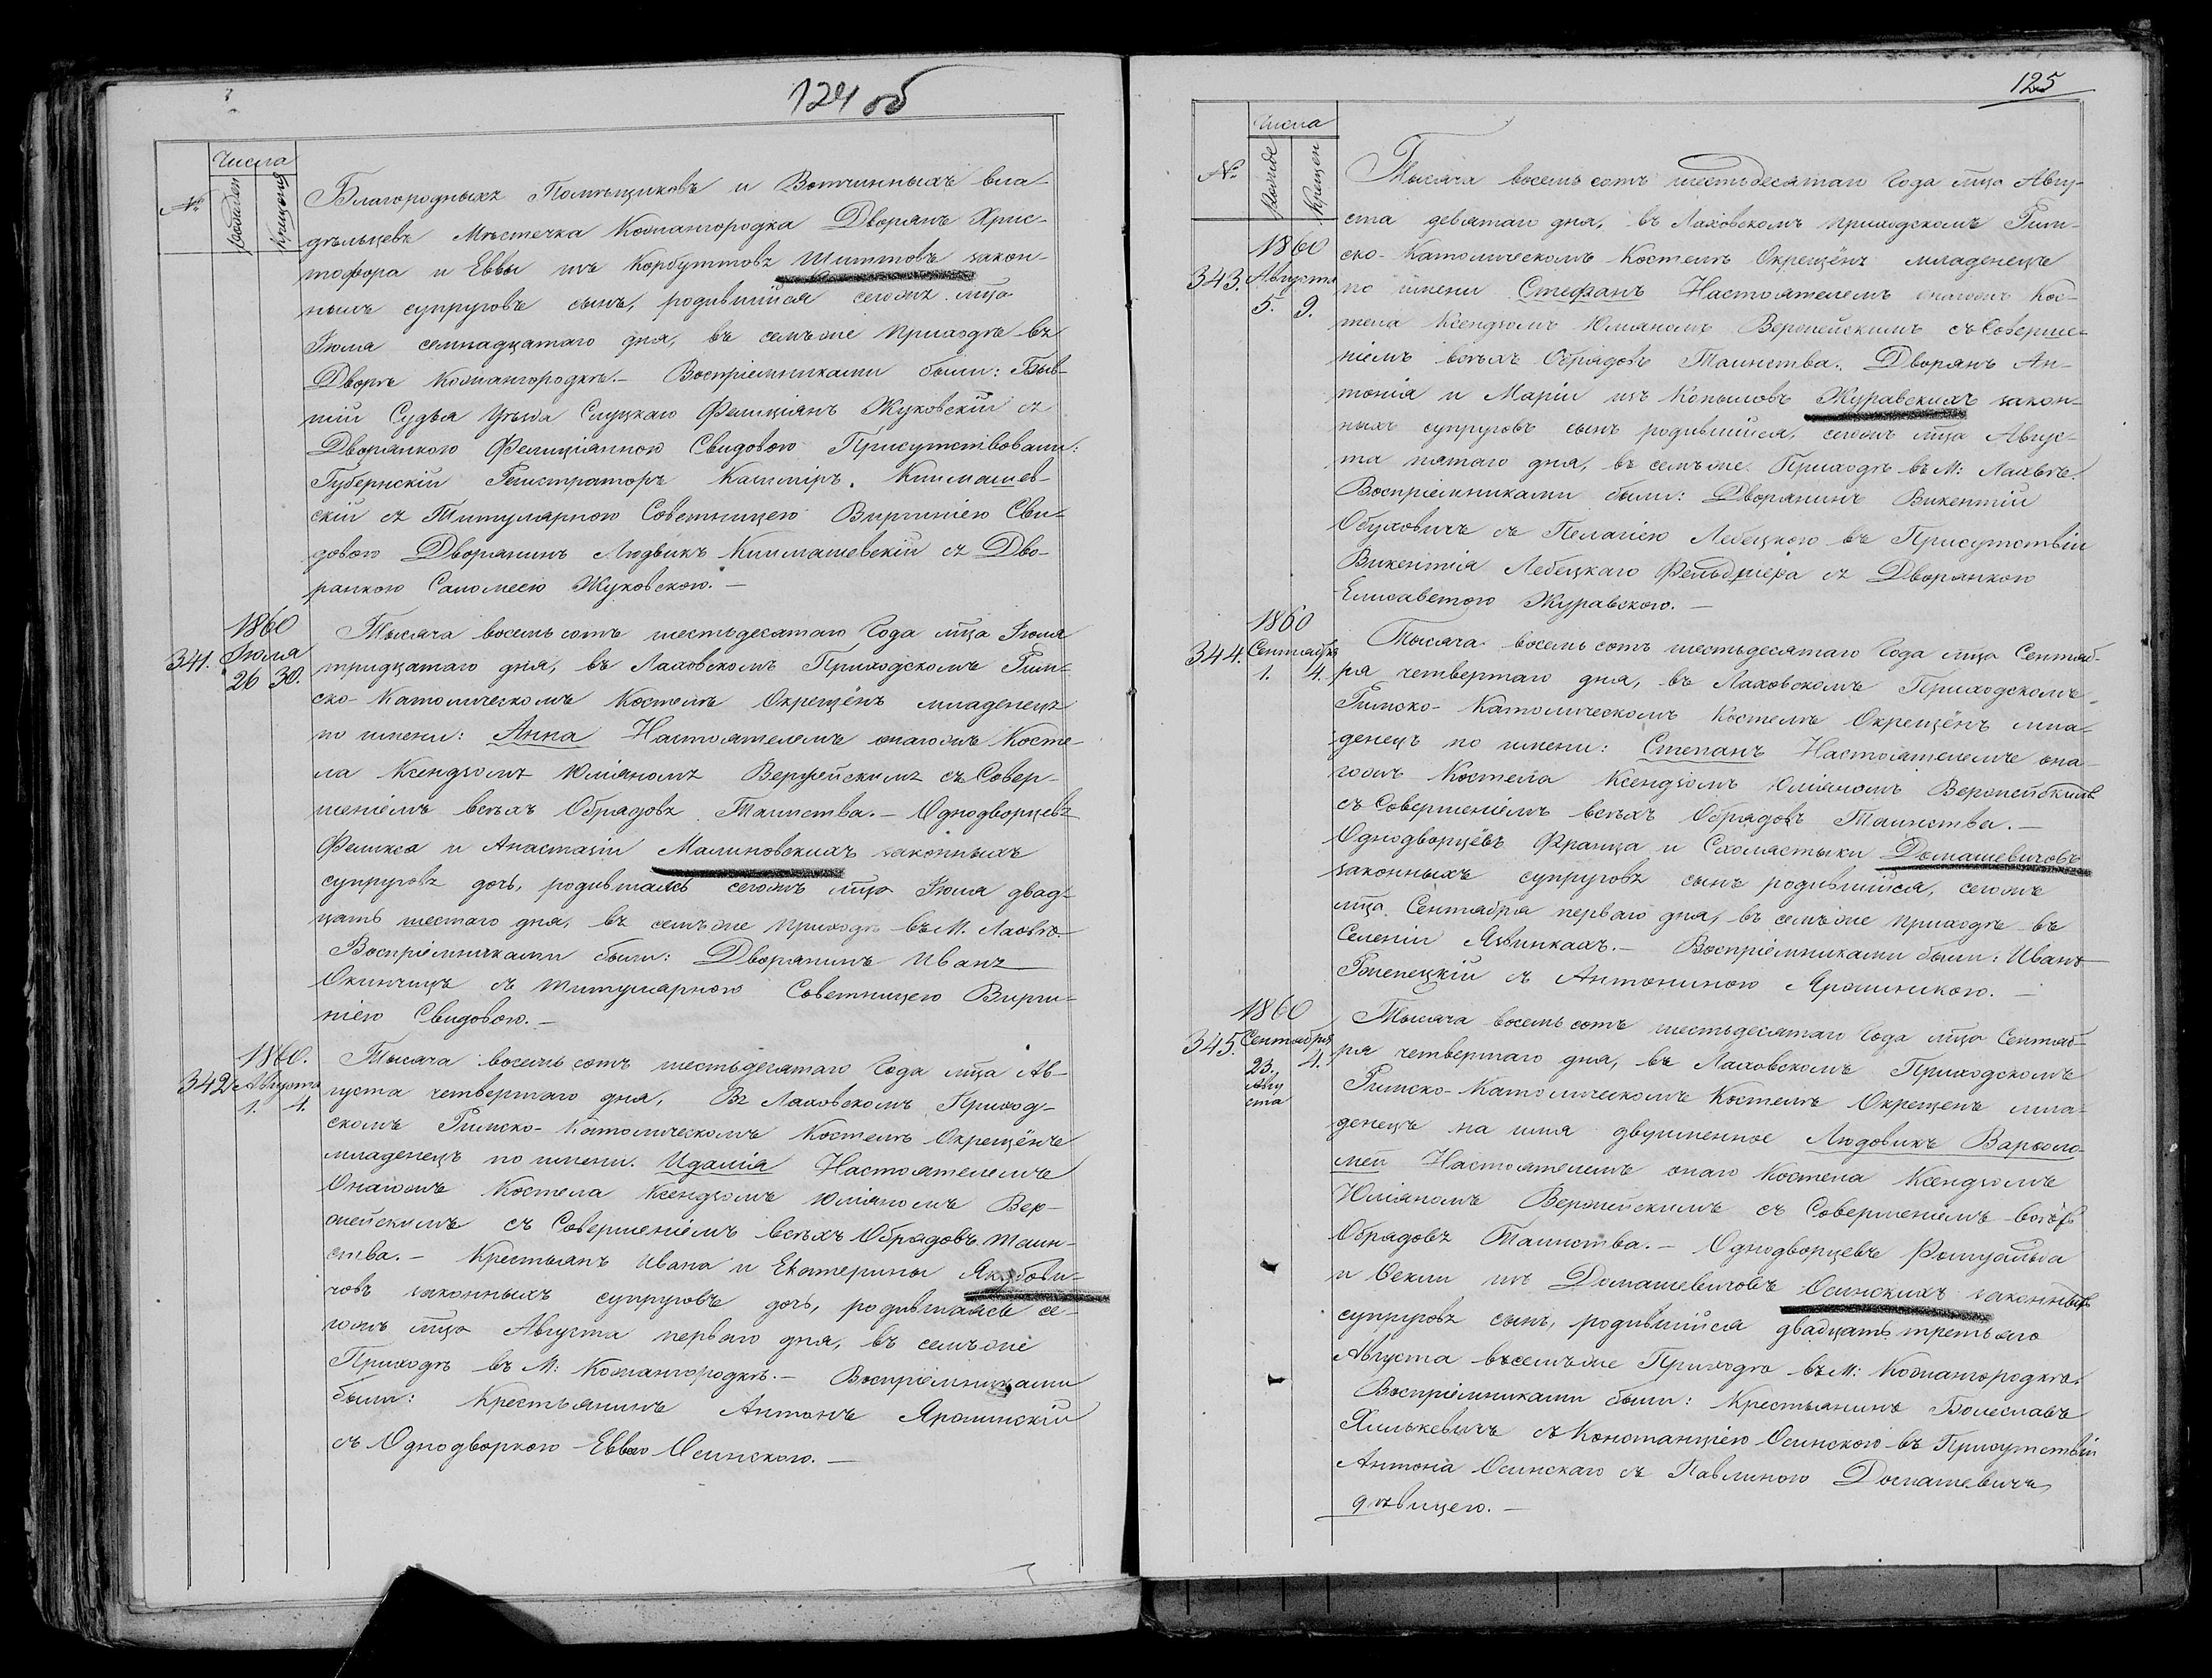 124 об
№
Числа
рожден
крещения
Благородныхъ Помѣщиковъ и Вотчинныхъ вла-
дѣльцевъ Мѣстечка Кожангородка Дворянъ Хрис-
тофора и Еввы изъ Корбуттовъ Шиттовъ закон-
ныхъ супруговъ сынъ, родившійся сегожъ мѣца
Іюля семнадцатаго дня, въ семъ же Приходѣ въ
Дворѣ Кожангородкѣ.— Воспріемниками были: Быв-
шій Судья Уѣзда Слуцкаго Фелиціянъ Жуковскій съ
Дворянкою Фелиціянною Свидовою Присутствовали:
Губернскій Регистраторъ Казимиръ Климашев-
скій съ Титулярною Совѣтницею Виргиніею Сви-
довою Дворянинъ Людвикъ Климашевскій съ Дво-
рянкою Саломеею Жуковскою.—
1860
341. Іюля
26 30.
Тысяча восемь сотъ шестьдесятаго Года мѣца Іюля
тридцатаго дня, въ Лаховскомъ Приходскомъ Рим-
ско-Католическомъ Костелѣ Окрещёнъ младенецъ
по имени: Анна Настоятелемъ онагожъ Косте-
ла Ксендзомъ Юліяномъ Вержейскимъ съ Совер-
шеніемъ всѣхъ Обрядовъ Таинства.— Однодворцевъ
Феликса и Анастазіи Малиновскихъ законныхъ
супруговъ дочь, родившаясь сегожъ мѣца Іюля двад-
цать шестаго дня, въ семъ же Приходѣ въ М. Лахвѣ.
Воспріемниками были: Дворянинъ Иванъ
Окинчицъ съ Титулярною Совѣтницею Вирги-
ніею Свидовою.—
1860.
342. Августа
1. 4.
Тысяча восемь сотъ шестьдесятаго Года мѣца Ав-
густа четвертаго дня, Въ Лаховскомъ Приход-
скомъ Римско-Католическомъ Костелѣ Окрещёнъ
младенецъ по имени. Идалія Настоятелемъ
Онагожъ Костела Ксендзомъ Юліяномъ Вер-
жейскимъ съ Совершеніемъ всѣхъ Обрядовъ Таин-
ства.— Крестьянъ Ивана и Екатерины Якубови-
човъ законныхъ супруговъ дочь, родившаясь се-
гожъ мѣца Августа перваго дня, въ семъ же
Приходѣ въ М: Кожангородкѣ.— Воспріемниками
были: Крестьянинъ Антонъ Ярошинскій
съ Однодворкою Еввою Осинскою.—
125
№
Числа
рожде
крещен
1860
343. Августа
5. 9.
Тысяча восемь сотъ шестьдесятаго Года мѣца Авгу-
ста девятаго дня, въ Лаховскомъ приходскомъ Рим-
ско-Католическомъ Костелѣ Окрещёнъ младенецъ
по имени Стефанъ Настоятелемъ онагожъ Кос-
тела Ксендзомъ Юліяномъ Вержейскимъ съ Соверше-
ніемъ всѣхъ Обрядовъ Таинства. Дворянъ Ан-
тонія и Маріи изъ Копыловъ Журавскихъ закон-
ныхъ супруговъ сынъ родившійся, сегожъ мѣца Авгус-
та пятаго дня, въ семъ же Приходѣ въ М: Лахвѣ.
Воспріемниками были: Дворянинъ Викентій
Обуховичъ съ Пелагіею Лебецкою въ Присутствіи
Викентія Лебецкаго Фельдшера съ Дворянкою
Елисаветою Журавскою.—
1860
344. Сентября
1. 4.
Тысяча восемь сотъ шестьдесятаго Года мѣца Сентяб-
ря четвертаго дня, въ Лаховскомъ Приходскомъ
Римско-Католическомъ Костелѣ Окрещёнъ мла-
денецъ по имени: Степанъ Настоятелемъ она-
гожъ Костела Ксендзомъ Юліяномъ Вержейскимъ
съ Совершеніемъ всѣхъ Обрядовъ Таинства.—
Однодворцёвъ Франца и Схолястыки Домашевичовъ
законныхъ супруговъ сынъ родившійся, сегожъ
мѣца Сентября перваго дня, въ семъ же приходѣ въ
Селеніи Язвинкахъ.— Воспріемниками были: Иванъ
съ Антониною Ярошинскою.—
1860
345. Сентября
23. 4.
Авгу
ста
Тысяча восемь сотъ шестьдесятаго Года мѣца Сентяб-
ря четвертаго дня, въ Лаховскомъ Приходскомъ
Римско-Католическомъ Костелѣ Окрещенъ мла-
денецъ на имя двуименное Людовикъ Варѳоло-
мей Настоятелемъ онаго Костела Ксендзомъ
Юліяномъ Вержейскимъ съ Совершеніемъ всѣхъ
Обрядовъ Таинства.— Однодворцевъ Ромуальда
и Ѳеклы изъ Домашевичовъ Осинскихъ законныхъ
супруговъ сынъ, родившійся двадцать третьяго
Августа въ семъ же Приходѣ въ М: Кожангородкѣ.
Воспріемниками были: Крестьянинъ Болеславъ
Хилькевичъ съ Констанціею Осинскою въ Присутствіи
Антона Осинскаго съ Павлиною Домашевичъ
дѣвицею.—